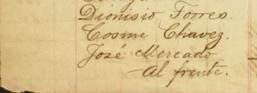 Dionisio Torres.
Cosme Chavez.
José Mercado
Al frente.